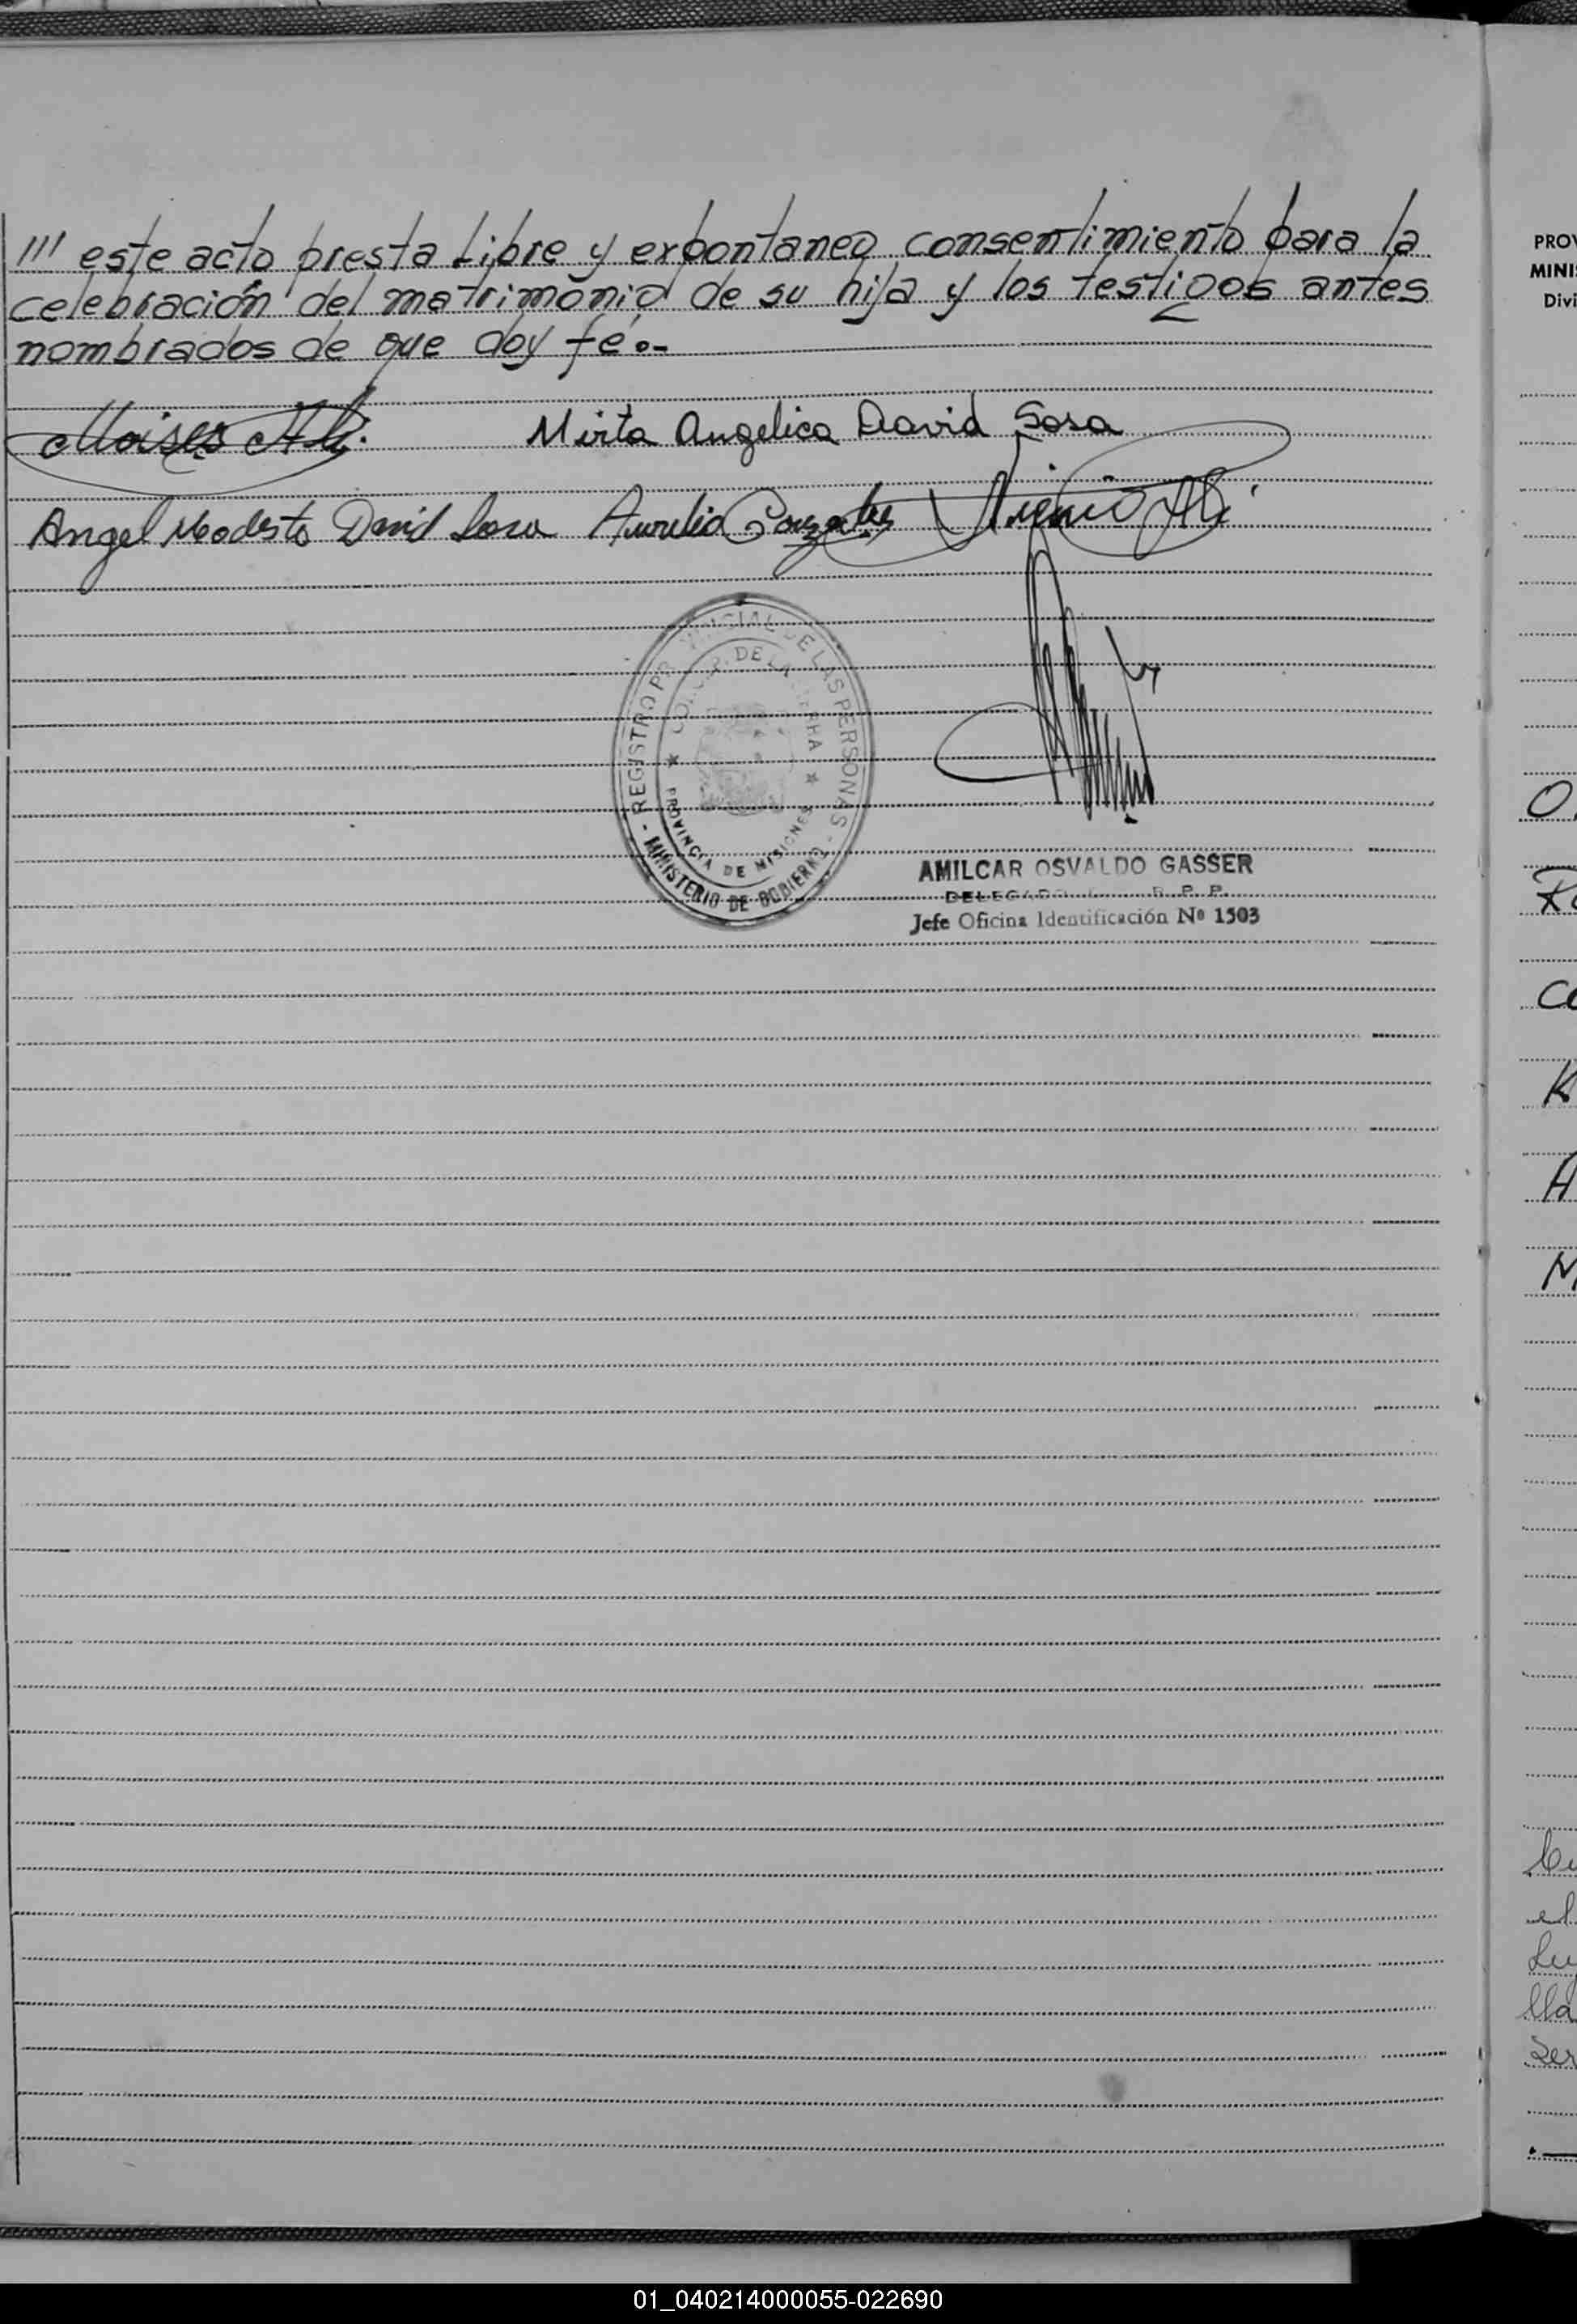 /// este acto presta libre y expontaneo consentimiento para la
celebración del matrimonio de su hija y los testigos antes
nombrados de que doy fé.-
Moises Ali.
Mirta Angelica David Sosa
Angel Modesto David Sosa Aurelio Gonzalez
REGISTRO PROVINCIAL DE LAS PERSONAS
DE LA
PROVINCIA DE MISIONES
- MINISTERIO DE GOBIERNO -
AMILCAR OSVALDO GASSER
DELEGADO R. P. P.
Jefe Oficina Identificación Nº 1503
PROV
MINIS
Divi
O.
K
A
M
el
01_040214000055-022690